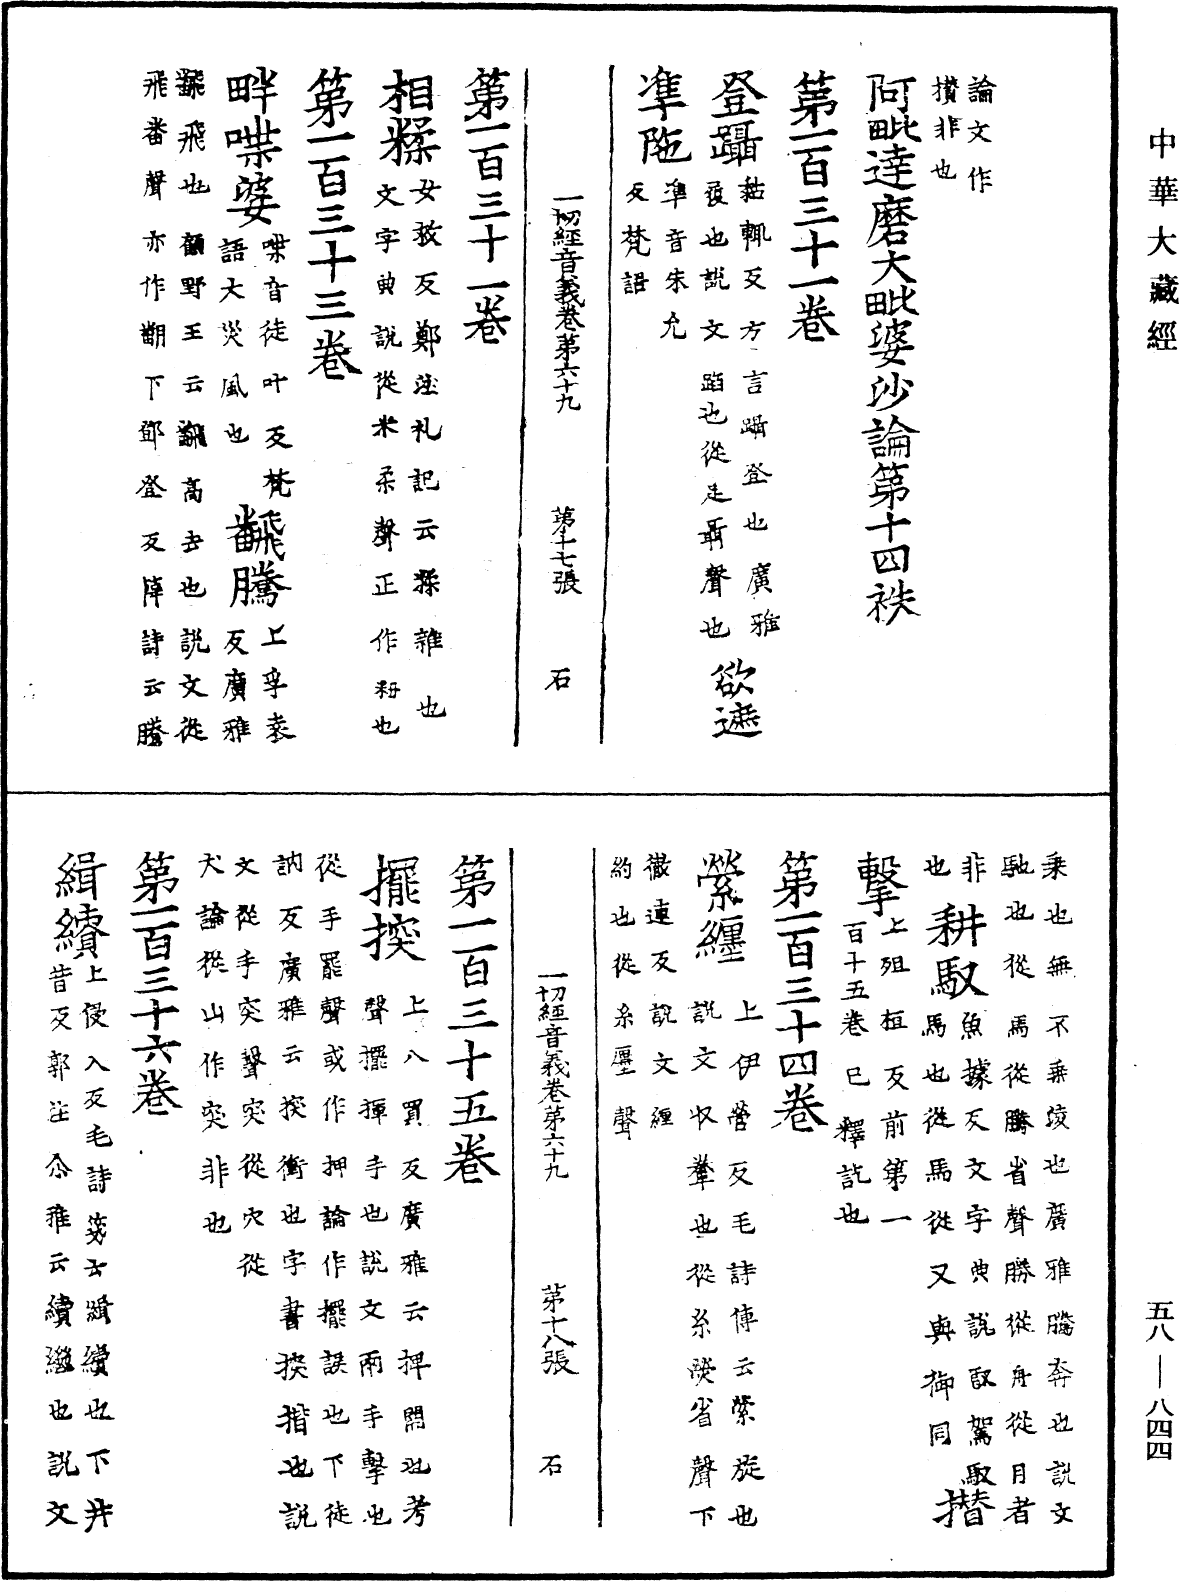 中華大藏經
論文作
攅非也
阿毗達磨大毗婆沙論第十四袟
第一百三十一卷
登躡 黏輒反方言躡登也廣雅
履也說文蹈也從足聶聲也 欲遮
準陁 準音朱允
反梵語
一切經音義卷第六十九 第十七張 石
第一百三十一卷
相糅 女救反鄭注礼記云糅雜也
文字典說從米柔聲正作粈也
第一百三十三卷
畔喋婆 喋音徒叶反梵
語大災風也 飜騰 上孚袁
反廣雅
飜飛也顧野王云飜高去也說文從
飛番聲亦作翻下鄧登反陣詩云騰
乘也無不乘淩也廣雅騰奔也說文
馳也從馬從騰省聲勝從舟從月者
非 耕馭 魚據反文字典說馭駕馭
也馬也從馬從又與御同 攅
擊 上殂桓反前第一
百十五卷已釋訖也
第一百三十四卷
縈纏 上伊營反毛詩傳云縈旋也
說文收韏也從糸熒省聲下
徹連反說文纏
約也從糸廛聲
一切經音義卷第六十九 第十八張 石
第一百三十五卷
擺揬 上八買反廣雅云捭開也考
聲擺揮手也說文兩手擊也
從手罷聲或作押論作擺誤也下徒
訥反廣雅云揬衝也字書揬揩也說
文從手突聲突從穴從
犬論從山作突非也
第一百三十六卷
緝續 上侵入反毛詩箋云緝續也下井
昔反郭注尒雅云續繼也說文
五八—八四四